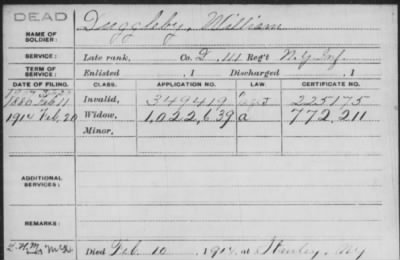 DEAD
NAME OF SOLDIER: Duggleby, William
SERVICE: Late rank, Co. D, 111 Reg't N.Y. Inf.
TERM OF SERVICE: Enlisted , 1 Discharged , 1
DATE OF FILING. CLASS. APPLICATION NO. LAW. CERTIFICATE NO.
1880 Feb 11 Invalid, 349419 225175
1914 Feb, 20 Widow, 1,022,639 a 772,211
Minor,
ADDITIONAL SERVICES:
REMARKS:
Died Feb. 10, 1914 at Stanley, NY